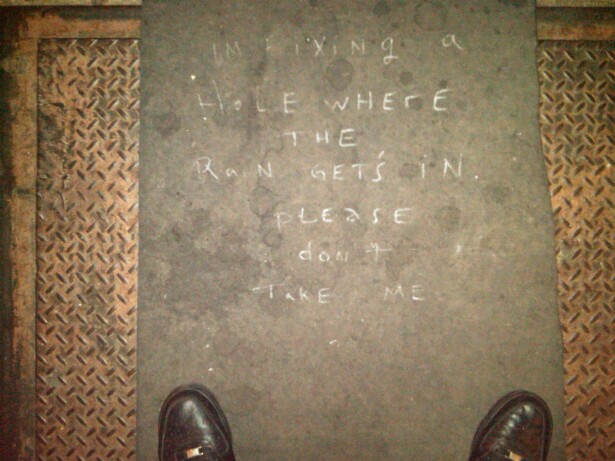 IM FIXINg a
HoLE WHErE
THE
RaiN GET'S iN.
pLEaSE
don't
TaKE ME